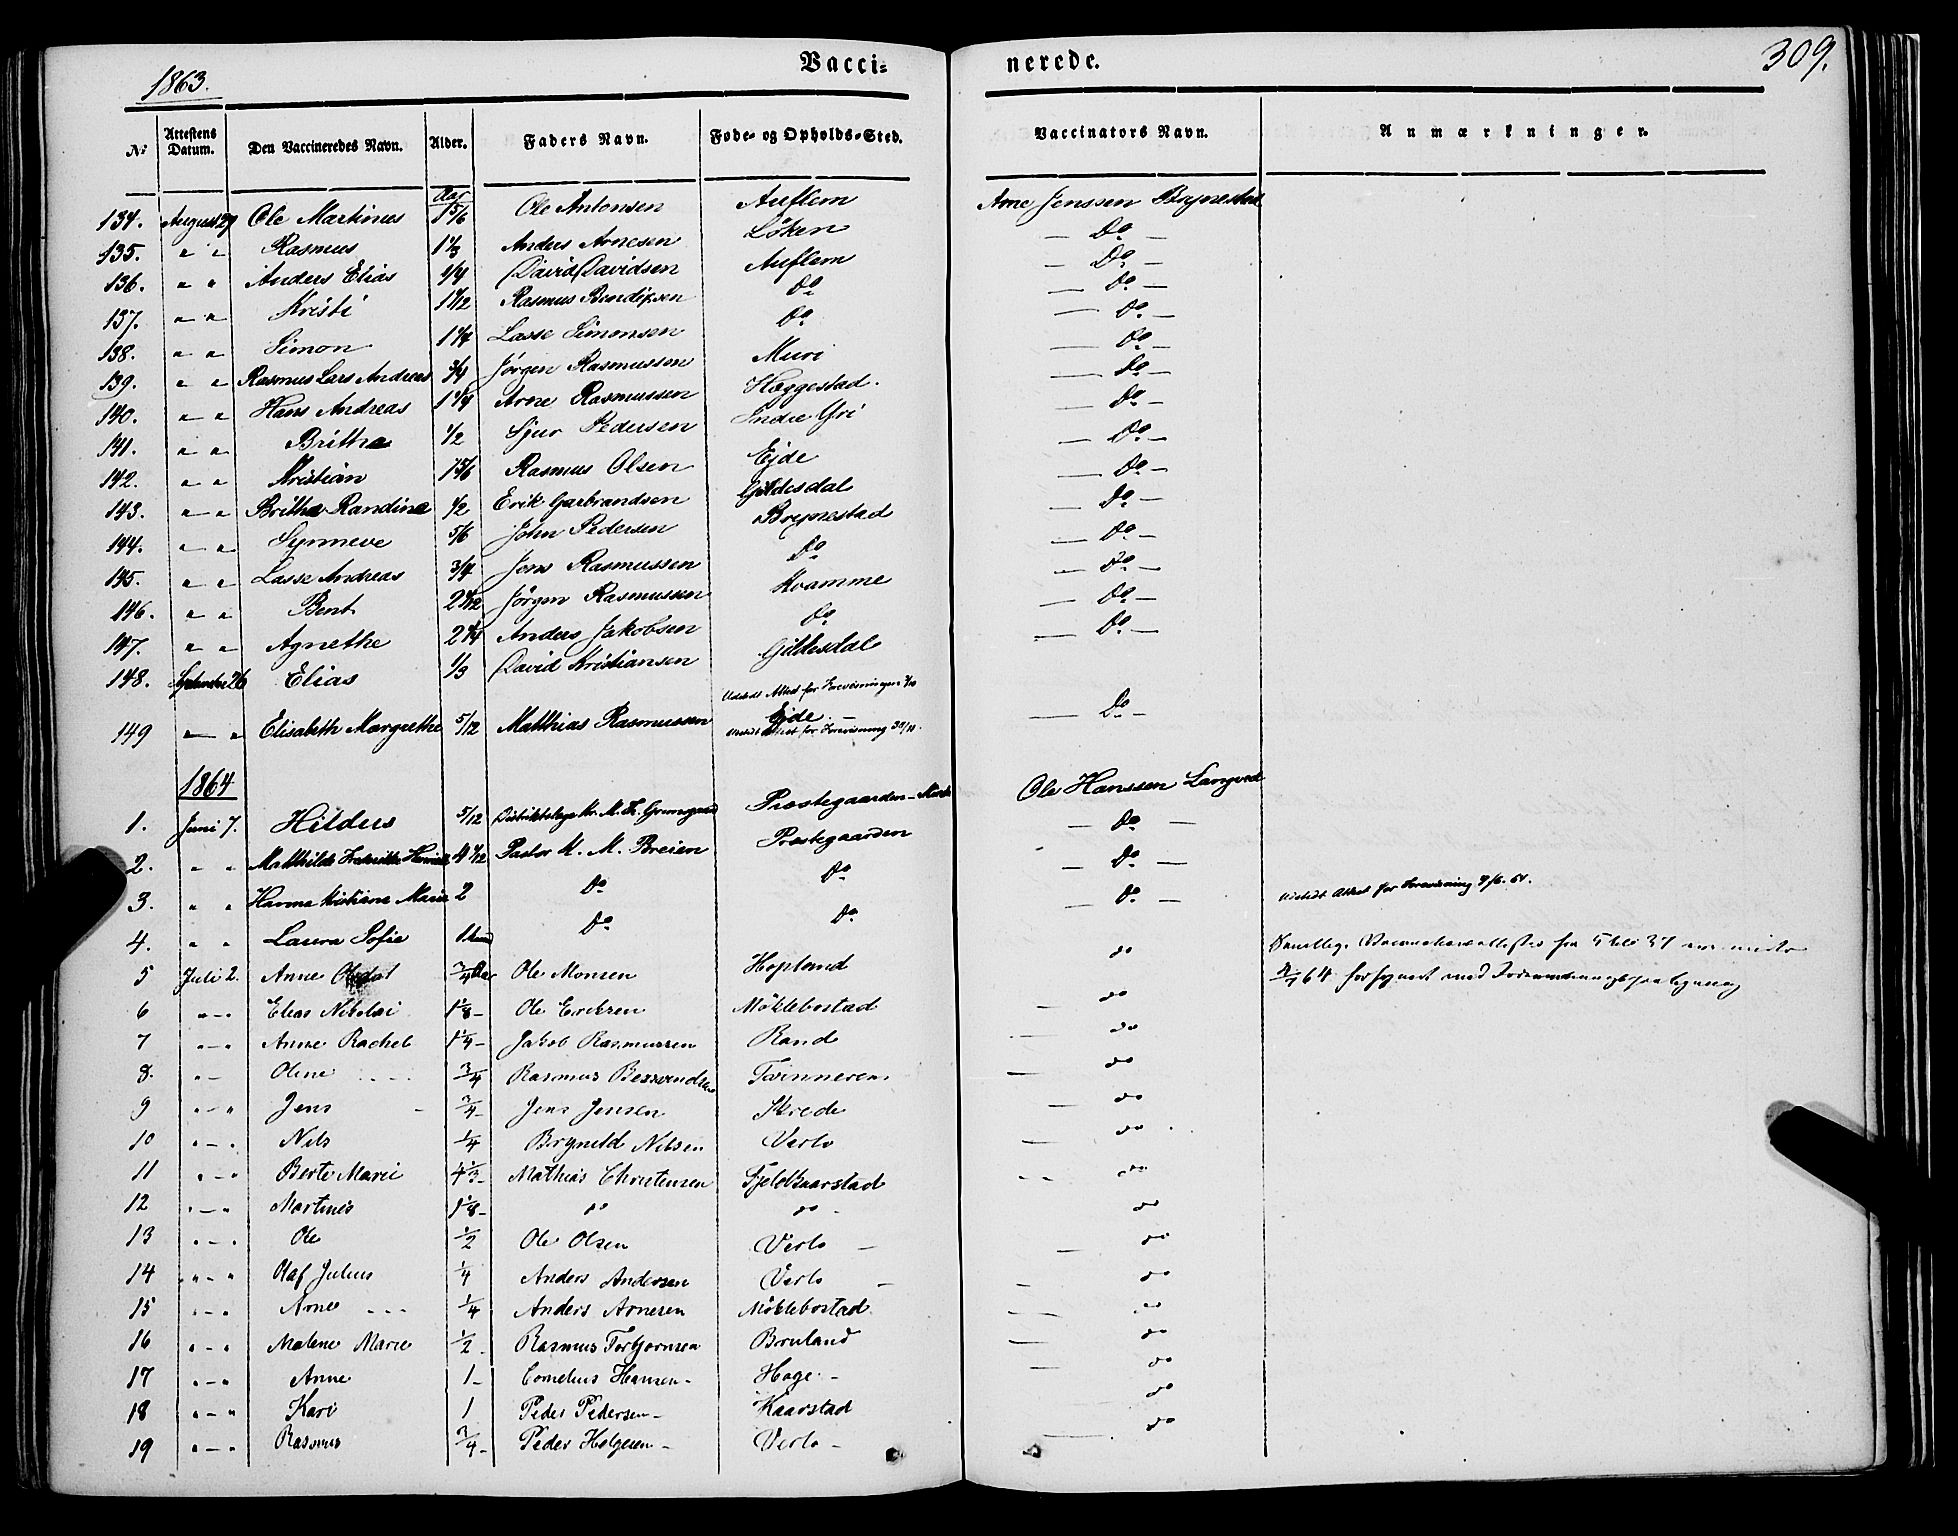 Vacci=nerede.
309.
1863.
No Attestens Datum. Den Vaccineredes Navn. Alder. Faders Navn. Føde- og Opholds-Sted. Vaccinators Navn. Anmærkninger.
Aar
134. August 29 Ole Martinus 1 5/6 Ole Antonsen Auflem Arne Jenssen Brynestad
135. " " Rasmus 1 1/3 Anders Arnesen Löken — Do —
136. " " Anders Elias 1/4 David Davidsen Auflem — Do —
137. " " Kristi Rasmus Bendixsen Do — Do —
138. " " Simon 1 1/4 Lasse Simonsen Do — Do —
139. " " Rasmus Lars Andreas 3/4 Jörgen Rasmussen Muri — Do —
140. " " Hans Andreas 1 1/4 Arne Rasmussen Hæggestad. — Do —
141. " " Britha 1/2 Sjur Pedersen Indre Yri — Do —
142. " " Kristian 1 5/6 Rasmus Olsen Ejde — Do —
143. " " Britha Randina 1/2 Erik Garbrandsen Gildesdal — Do —
144. " " Synneve 5/6 John Pedersen Brynestad — Do —
145. " " Lasse Andreas 3/4 Jens Rasmussen Do — Do —
146. " " Bent Jörgen Rasmussen Kvamme — Do —
147. " " Agnethe 2 1/4 Anders Jakobsen Do — Do —
148. September 26 Elias 1/3 David Kristiansen Gildesdal — Do —
Udstedt Attest for Forevisningen
149 " " Elisabeth Margrethe 5/12 Matthias Rasmussen Ejde — — Do —
Udstedt Attest for Forevisning
1864
1. Juni 7. Hildus 5/12 Præstegaarden Ole Hanssen Langved
2. " " Mathilde Pastor K. M. Breien Præstegaarden — Do —
3. " " Hanna Kristiane Marie 2 Do Do — Do —
4. " " Laura Sofie 1 Do Do — Do — Udstedt Attest for Forevisning
5 Juli 2. Anne 3/4 Aar Ole Monsen Hopland do
6 " — " Elias Nikolai 1 1/8 — Ole Eriksen Möklebostad do
7 " — " Anne Rachel 1 1/4 — Jakob Rasmussen Rand do
8. " — Oline 3/4 Rasmus Tvinneren — do
9 " — " Jens 3/4 Jens Jensen Skrede — do
10 " — . Nils 1/4 Brynild Nilsen Verlo — do
11 " — " Berte Marie 4 1/3 — Mathias Christensen Fjeldkaarstad do
12 " — " Martines 1 1/8 — do do do
13 " — . Ole 1/2 Ole Olsen Verlo — — do
14 " — " Olaf Julius 1/4 Anders Andersen Verlo — — do
15 " — " Arne 1/4 Anders Arnesen Möklebostad — do
16 " — " Malene Marie 1/2 Rasmus Torbjörnsen Bruland — do
17 " — " Anne 1 — Cornelius Hansen — Hage — — do
18 " — " Kari 1 Peder Pedersen — Kaarstad — do
19 " — " Rasmus 3/4 — Peder Helgesen — Verlo — — do